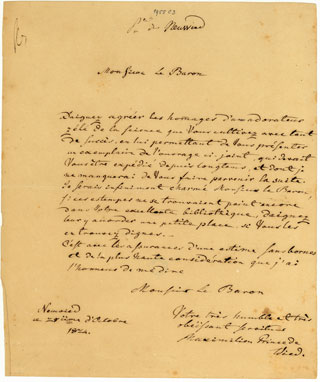 Monsieur Le Baron
Daignez agréer les hommages d'un adorateur
zélé de la science que Vous cultivez avec tant
de succès, en lui permettant de Vous présenter
un exemplaire de l'ouvrage ci joint, qui devoit
Vous être expédié depuis longtems, et dont je
ne manquerai de Vous faire parvenir la suite.
Je serais infiniment charmé Monsieur le Baron,
si ces estampes ne se trouvaient point encore
dans Votre excellente bibliothèque, Daignez
leur y accorder une petite place, si Vous les
en trouvez dignes.
C'est avec les assurances d'une estime sans bornes
et de la plus haute considération que j'ai
l'honneur de me dire
Monsieur Le Baron
Neuwied
Votre très humble et très
d'Octobre
obéissant serviteur
1824.
Maximilien Prince de
Wied.